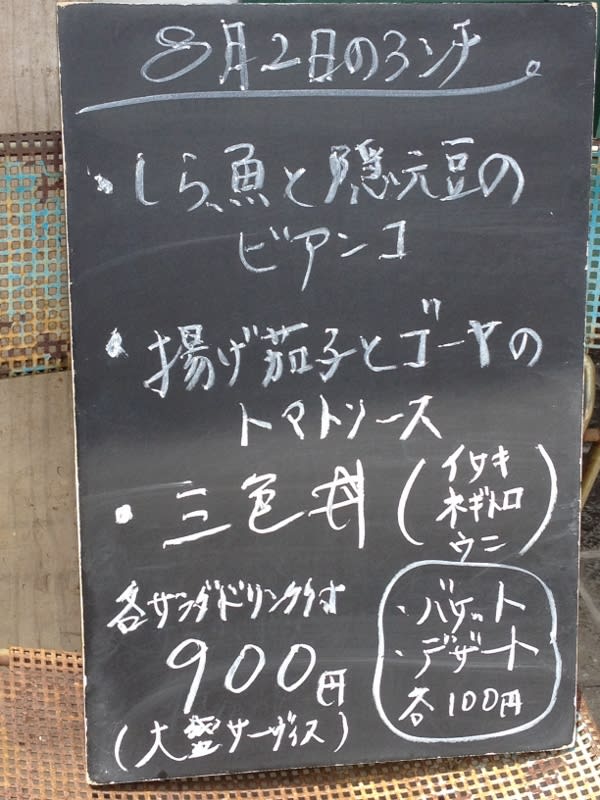 8月2日のランチ。
・しら魚と隠元豆の
ビアンコ
・揚げ茄子とゴーヤの
トマトソース
・三色丼(イワキ
ネギトロ
ウニ)
各サラダドリンク付
900円
(大盛サーヴィス)
・バケット
・デザート
各100円